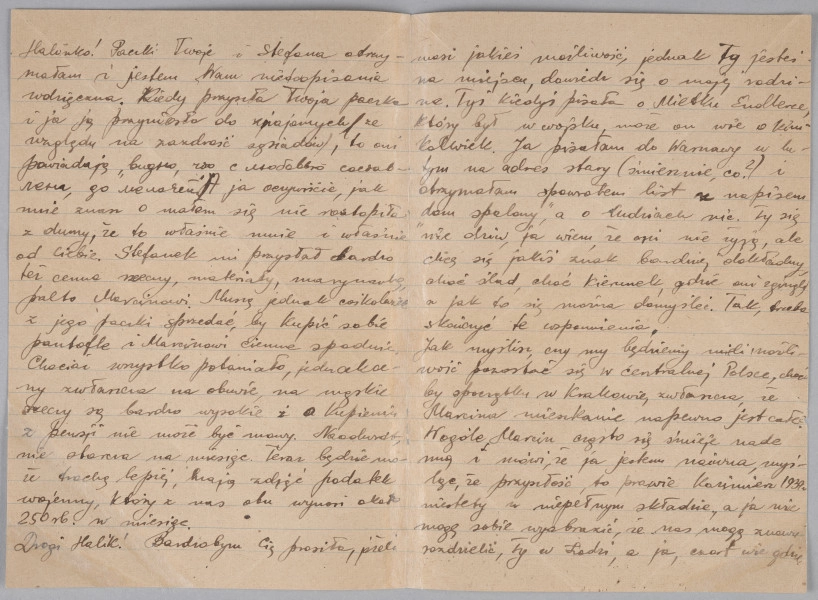 Halinko! Paczki Twoje i Stefana otrzy-
małam i jestem Wam nieodopisania
wdzięczna. Kiedy przyszła Twoja paczka
i ja ją przyniosła do znajomych (ze
względu na zazdrość sąsiadów), to oni
powiadają,
ja oczywiście, jak
mnie znasz o mało się nie roztopiła
z dumy, że to właśnie mnie i właśnie
od Ciebie. Stefanek mi przysłał bardzo
też cenne rzeczy, materiały, marynarkę,
palto Marcinowi. Muszę jednak cośkolwiek
z jego paczki sprzedać, by kupić sobie
pantofle i Marcinowi ciemne spodnie.
Chociaż wszystko potaniało, jednak ce-
ny zwłaszcza na obuwie, na męskie
rzeczy są bardzo wysokie i o kupieniu
z pensji nie może być mowy. Naodwrót,
nie starcza na miesiąc. Teraz będzie mo-
że trochę lepiej, mają zdjąć podatek
wojenny, który z nas obu wynosi około
250 rb. w miesiąc.
Drogi Halik! Bardzobym Cię prosiła, jeżeli
masz jakieś możliwość, jednak Ty jesteś
na miejscu, dowiedz się o mojej rodzi-
nie. Tyś kiedyś pisała o Mietku
który był w wojsku, może on wie o kim-
kolwiek. Ja pisałam do Warszawy w lu-
tym na adres stary (śmiesznie, co?) i
otrzymałam spowrotem list z napisem
"dom spalony", a o ludziach nic. Ty się
nie dziw, ja wiem że oni nie żyją, ale
chcę się jakiś znak bardziej dokładny,
choć ślad, choć kierunek, gdzie oni zginęli
a jak to się można domyśleć. Tak, trzeba
skończyć te wspomnienia.
Jak myślisz, czy my będziemy mieli możli-
wość pozostać się w centralnej Polsce, choć
by spoczątku w Krakowie, zwłaszcza, że
Marcina mieszkanie napewno jest całe.
Wogóle Marcin często się śmieje nade
mną i mówi, że ja jestem naiwna, myś-
lę, że przyszłość to prawie Kazimierz 1939 r.
niestety w niepełnym składzie, a ja nie
mogę sobie wyobrazić, że nas mogą znowu
rozdzielić, Ty w Łodzi, a ja, czort wie gdzie